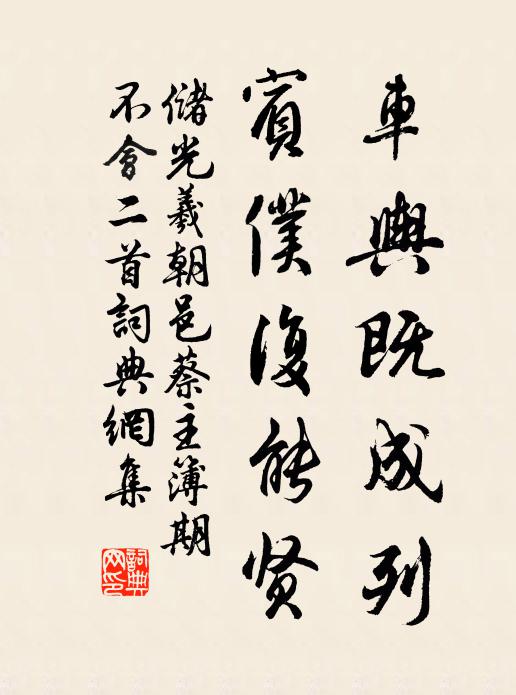 車輿既成列
賓僕復能贤
儲光羲朝邑蔡主簿期
不會二首詞典網集
詞典
网印